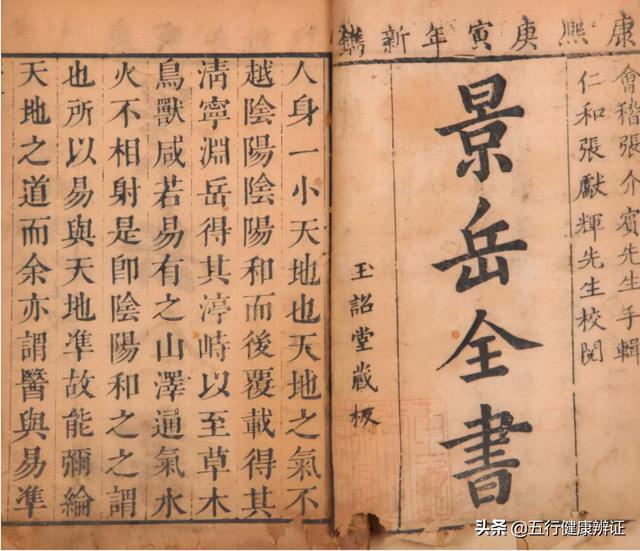 康熙庚寅年新鐫
會稽張介賓先生手輯
仁和張獻輝先生校閱
景岳全書
玉詔堂藏板
人身一小天地也天地之氣不
越陰陽陰陽和而後覆載得其
清寧淵岳得其渟峙以至草木
鳥獸咸若易有之山澤通氣水
火不相射是卽陰陽和之之謂
也所以易與天地準故能彌綸
天地之道而余亦謂醫與易準
头条 @五行健康辨证